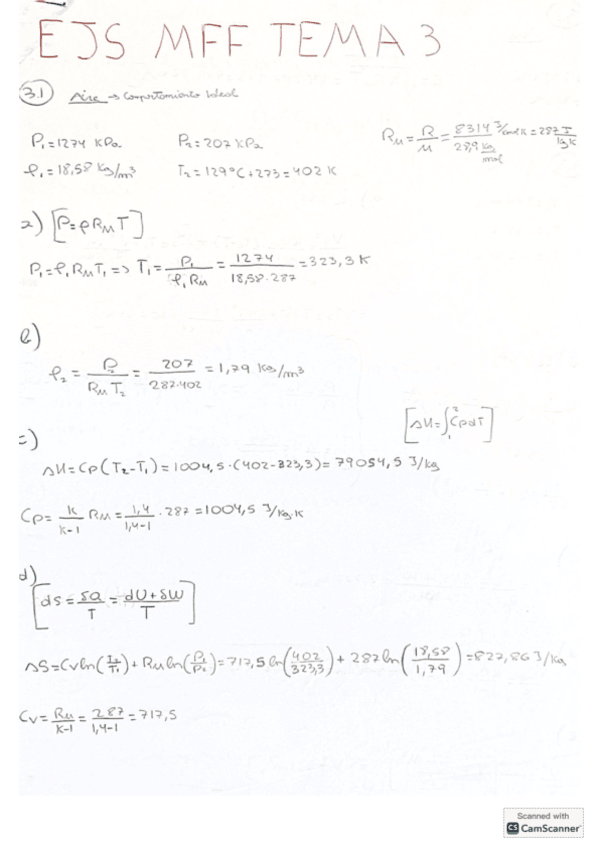 EJS MFF TEMA 3
3.1 Aire → Comportamiento Ideal
P₁ = 1274 KPa P₂ = 207 KPa R_M = R/M = 8314 J/kmol K / 28,9 kg/mol = 287 J/kg K
ρ₁ = 18,58 Kg/m³ T₂ = 129°C + 273 = 402 K
a) [P = ρ R_M T]
P₁ = ρ₁ R_M T₁ => T₁ = P₁/(ρ₁ R_M) = 1274/(18,58·287) = 323,3 K
b)
ρ₂ = P₂/(R_M T₂) = 207/(287·402) = 1,79 Kg/m³
c) [ΔH = ∫₁² Cp dT]
ΔH = Cp (T₂ - T₁) = 1004,5·(402 - 323,3) = 79054,5 J/kg
Cp = K/(K-1) R_M = 1,4/(1,4-1) · 287 = 1004,5 J/kg·K
d)
[dS = δQ/T = (dU + δW)/T]
ΔS = Cv ln(T₂/T₁) + R_M ln(ρ₁/ρ₂) = 717,5 ln(402/323,3) + 287 ln(18,58/1,79) = 827,86 J/kg
Cv = R_M/(K-1) = 287/(1,4-1) = 717,5
Scanned with
CS CamScanner